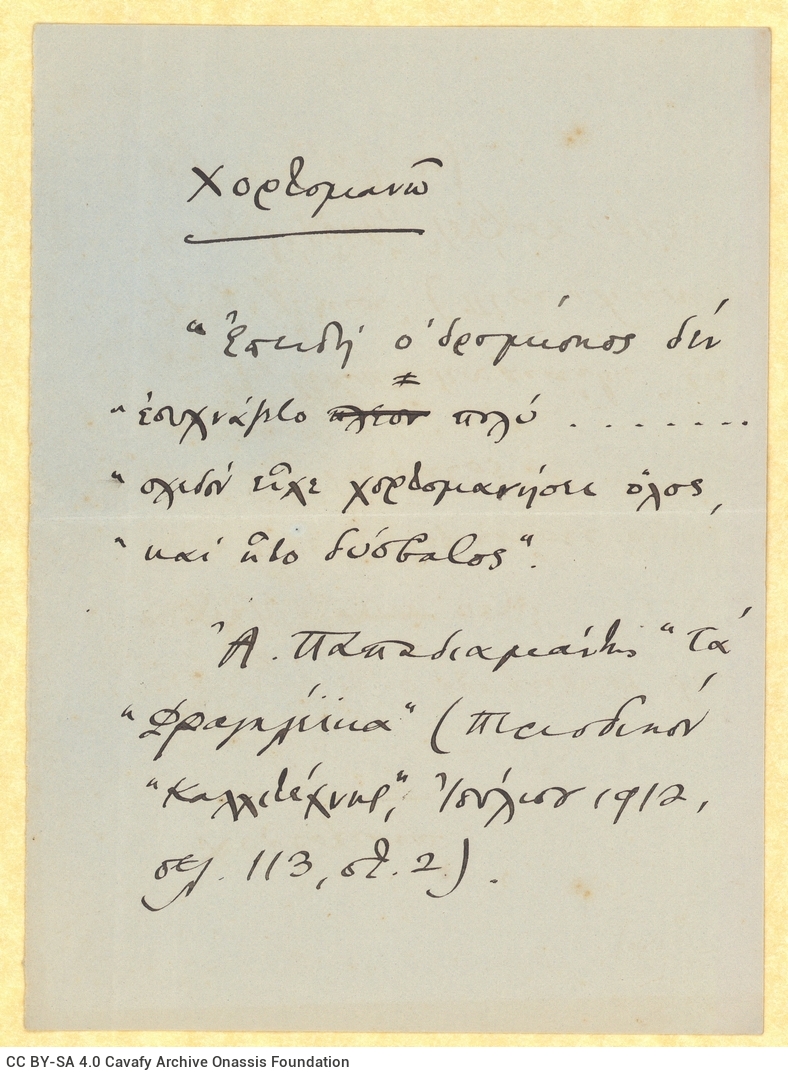 Χορτομανῶ
"Ἐπειδή ὁ δρομίσκος δέν
"ἐσυχνάζετο πλέον πολύ . . . . . . .
"σχεδόν εἶχε χορτομανήσει ὅλος,
"καί ἦτο δύσβατος".
Ἀ. Παπαδιαμάντης "Τά
"Φραγκλέϊκα" (Περιοδικόν
"Καλλιτέχνης", Ἰούλιου 1912,
σελ. 113, στ. 2).
CC BY-SA 4.0 Cavafy Archive Onassis Foundation